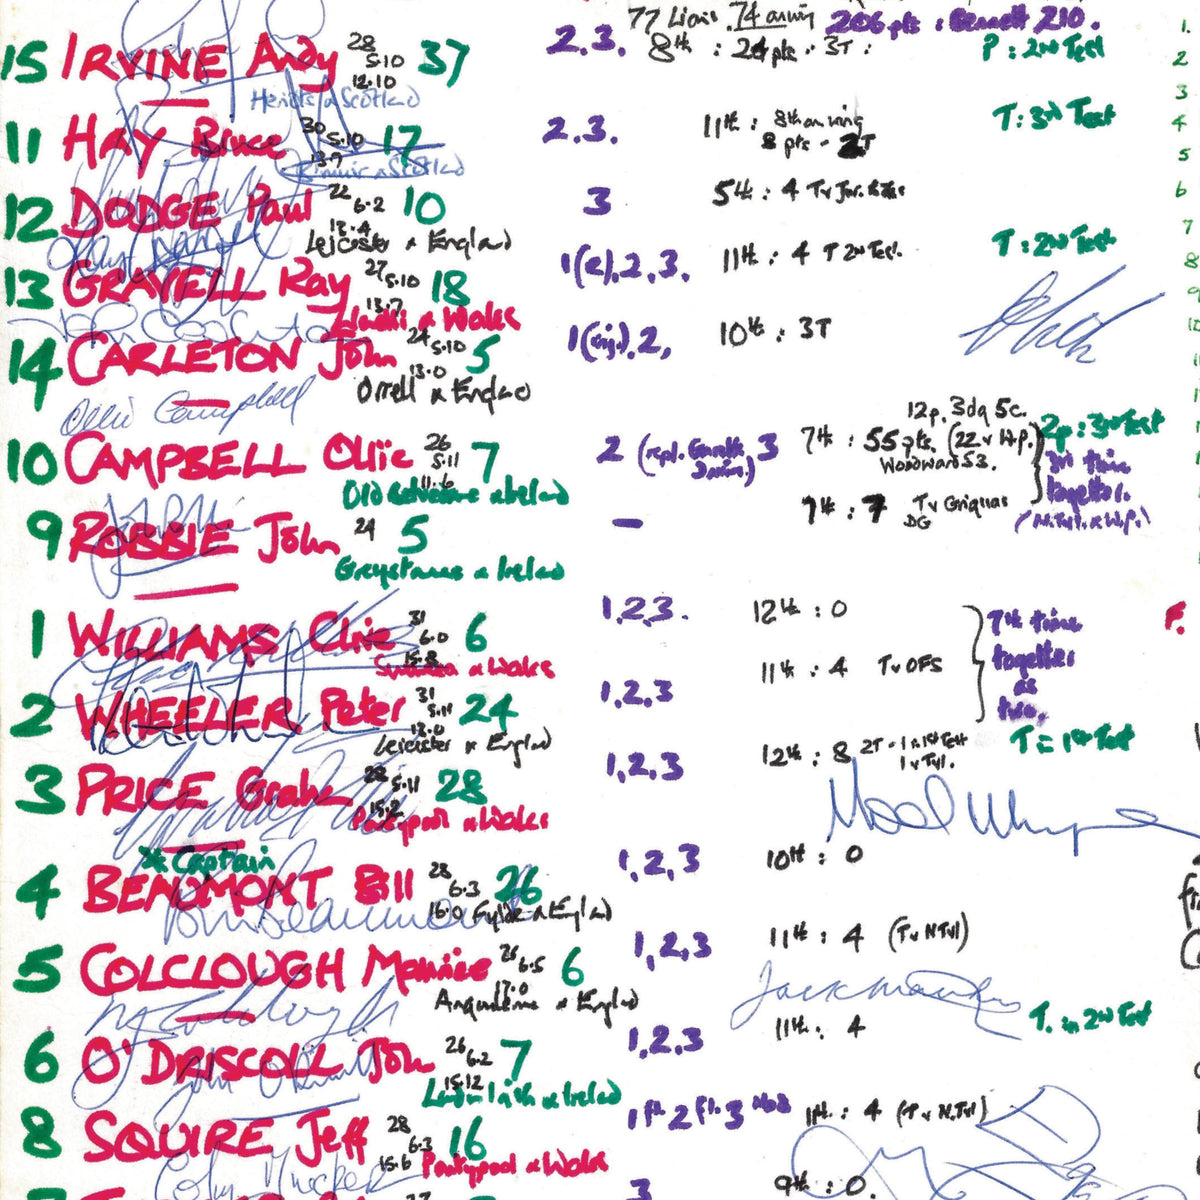 77 Lions 74 206 pts : Bennett 210.
15 IRVINE Andy 28 5.10 12.10 37 2.3. 8th : 24 pts - 3T : P : 2nd Test
Heriots & Scotland
11 HAY Bruce 30 5.10 13.7 17 2.3. 11th : 8th on wing 8 pts - 2T T : 3rd Test
& Scotland
12 DODGE Paul 22 6.2 13.4 10 3 5th : 4 T v
Leicester & England
13 GRAVELL Ray 27 5.10 13.7 18 1(R).2.3. 11th : 4 T 2nd Test. T : 2nd Test
Llanelli & Wales
14 CARLETON John 24 5.10 13.0 5 1(inj).2, 10th : 3T
Orrell & England
Ollie Campbell
12p. 3dg 5c.
10 CAMPBELL Ollie 26 5.11 11.6 7 2 (repl. Gareth Davies.) 3 7th : 55 pts. (22 v W.P.) 2p : 3rd Test
Woodward 53.
Old Belvedere & Ireland
3rd time together.
(N.Tvl. & W.P.)
9 ROBBIE John 24 5 – 7th : 7 T v Griquas DG
Greystones & Ireland
1 WILLIAMS Clive 31 6.0 15.8 6 1.2.3. 12th : 0
Swansea & Wales
7th time together as trio.
2 WHEELER Peter 31 5.11 13.0 24 1,2,3 11th : 4 T v OFS
Leicester & England
3 PRICE Graham 28 5.11 15.2 28 1,2,3 12th : 8 2T - 1 in 1st Test 1 v Tvl. T = 1st Test
Pontypool & Wales
* Captain
4 BEAUMONT Bill 28 6.3 16.0 26 1,2,3 10th : 0
Fylde & England
Bill Beaumont
5 COLCLOUGH Maurice 26 6.5 17.0 6 1,2,3 11th : 4 (T v N Tvl)
Angouleme & England
M Colclough
6 O'DRISCOLL John 26 6.2 15.12 7 1.2.3 11th : 4 T. in 2nd Test
London Irish & Ireland
John O'Driscoll
8 SQUIRE Jeff 28 6.3 15.6 16 1 fl. 2 fl. 3 No8 11th : 4 (T v N.Tvl)
Pontypool & Wales
3 9th : 0.
1.
2
3
4
5
6
7
8
9
10
F.